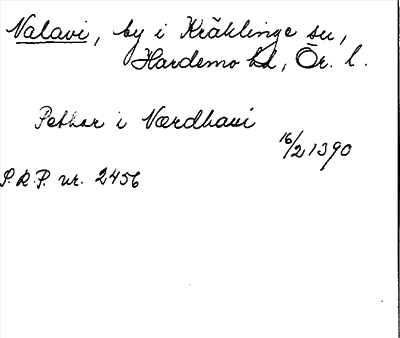 Nalavi, by i Kräklinge sn,
Hardemo hd, Ör. l.
Pethar i Nærdhaui
16/2 1390
P.R.P. nr. 2456